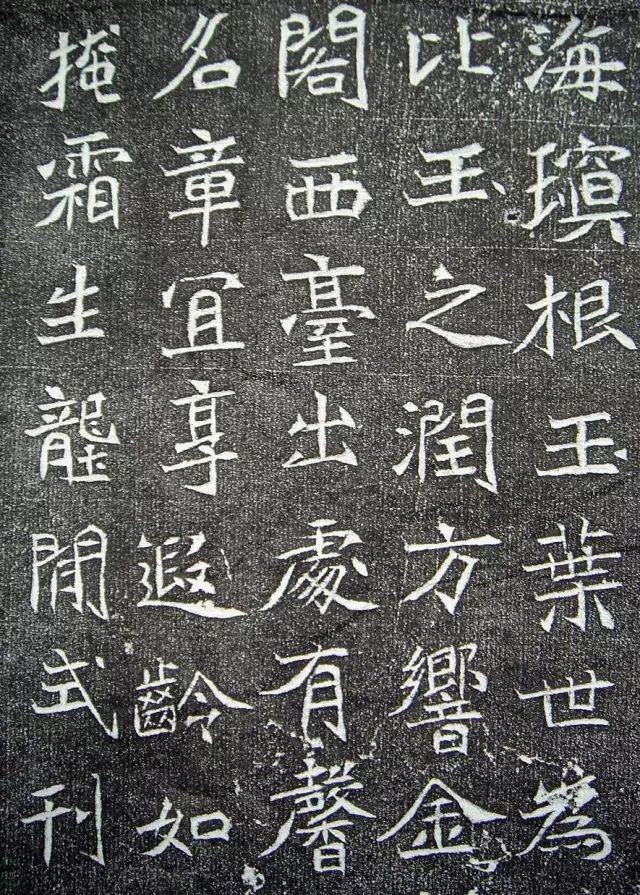 海瑱根玉葉世為
比玉之潤方響金
閣西臺出處有馨
名章宜享遐齡如
掩霜生壟閒式刊